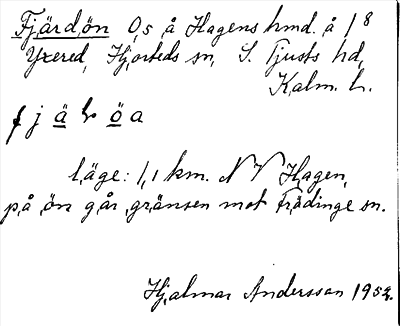 Fjärdön 0,5 å Hagens hmd. å 1/8
Yxered, Hjorteds sn, S. Tjusts hd,
Kalm. l.
f j ä r ö a
läge: 1,1 km. N V Hagen,
på ön går gränsen mot Frödinge sn.
Hjalmar Andersson 1952.